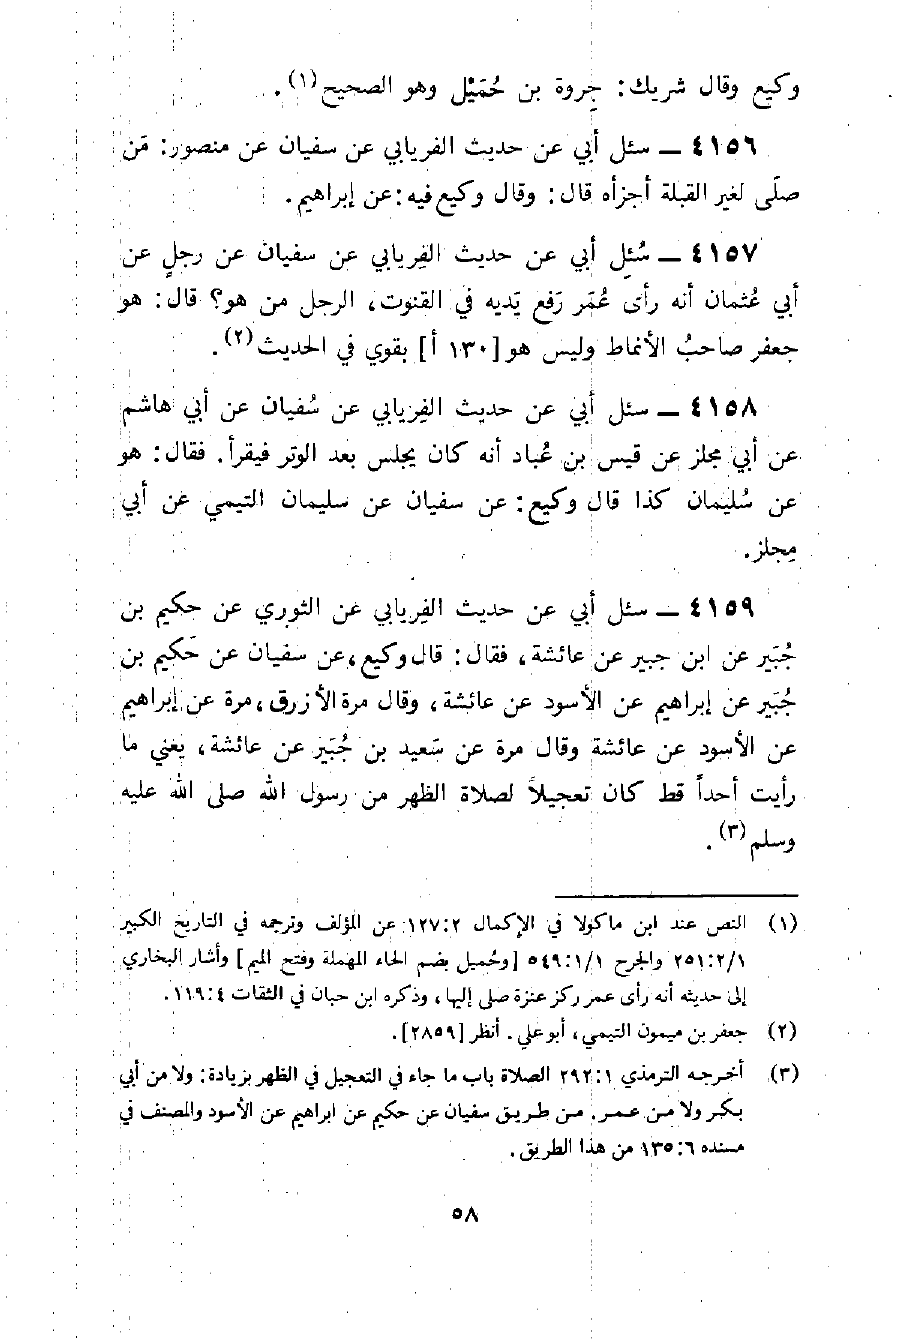 وكيع وقال شريك: جِروة بن حُمَيْل وهو الصحيح(١).
٤١٥٦ – سئل أبي عن حديث الفريابي عن سفيان عن منصور: مَن
صلّى لغير القبلة أجزأه قال: وقال وكيع فيه: عن إبراهيم.
٤١٥٧ – سُئِل أبي عن حديث الفِريابي عن سفيان عن رجلٍ عن
أبي عُثمان أنه رأى عُمَر رَفع يَديه في القنوت، الرجل من هو؟ قال: هو
جعفر صاحبُ الأنماط وليس هو [١٣٠ أ] بقوي في الحديث(٢).
٤١٥٨ – سئل أبي عن حديث الفِريابي عن سُفيان عن أبي هاشم
عن أبي مجلز عن قيس بن عُباد أنه كان يجلس بعد الوتر فيقرأ. فقال: هو
عن سُليمان كذا قال وكيع: عن سفيان عن سليمان التيمي عن أبي
مِجلز.
٤١٥٩ – سئل أبي عن حديث الفِريابي عن الثوري عن حكيم بن
جُبَير عن ابن جبير عن عائشة، فقال: قال وكيع، عن سفيان عن حَكيم بن
جُبَير عن إبراهيم عن الأسود عن عائشة، وقال مرة الأزرق، مرة عن إبراهيم
عن الأسود عن عائشة وقال مرة عن سَعيد بن جُبَير عن عائشة، يعني ما
رأيت أحداً قط كان تعجيلاً لصلاة الظهر من رسول الله صلى الله عليه
وسلم(٣).
(١) النص عند ابن ماكولا في الإكمال ١٢٧:٢ عن المؤلف وترجمه في التاريخ الكبير
٢٥١:٢/١ والجرح ٥٤٩:١/١ [وحُميل بضم الحاء المهملة وفتح الميم] وأشار البخاري
إلى حديثه أنه رأى عمر ركز عنزة صلى إليها، وذكره ابن حبان في الثقات ١١٩:٤.
(٢) جعفر بن ميمون التيمي، أبو علي. أنظر [٢٨٥٩].
(٣) أخرجه الترمذي ٢٩٢:١ الصلاة باب ما جاء في التعجيل في الظهر بزيادة: ولا من أبي
بكر ولا من عمر. من طريق سفيان عن حكيم عن ابراهيم عن الأسود والمصنف في
مسنده ١٣٥:٦ من هذا الطريق.
٥٨